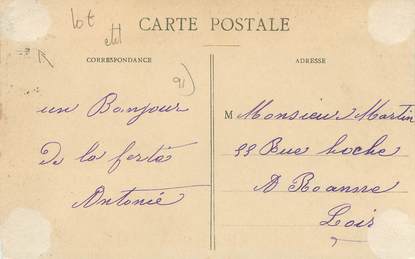 lot
CARTE POSTALE
CORRESPONDANCE
ADRESSE
91)
un Bonjour
De la ferté
Antonié
M Monsieur Martin
55 Rue hoche
A Roanne
Loir